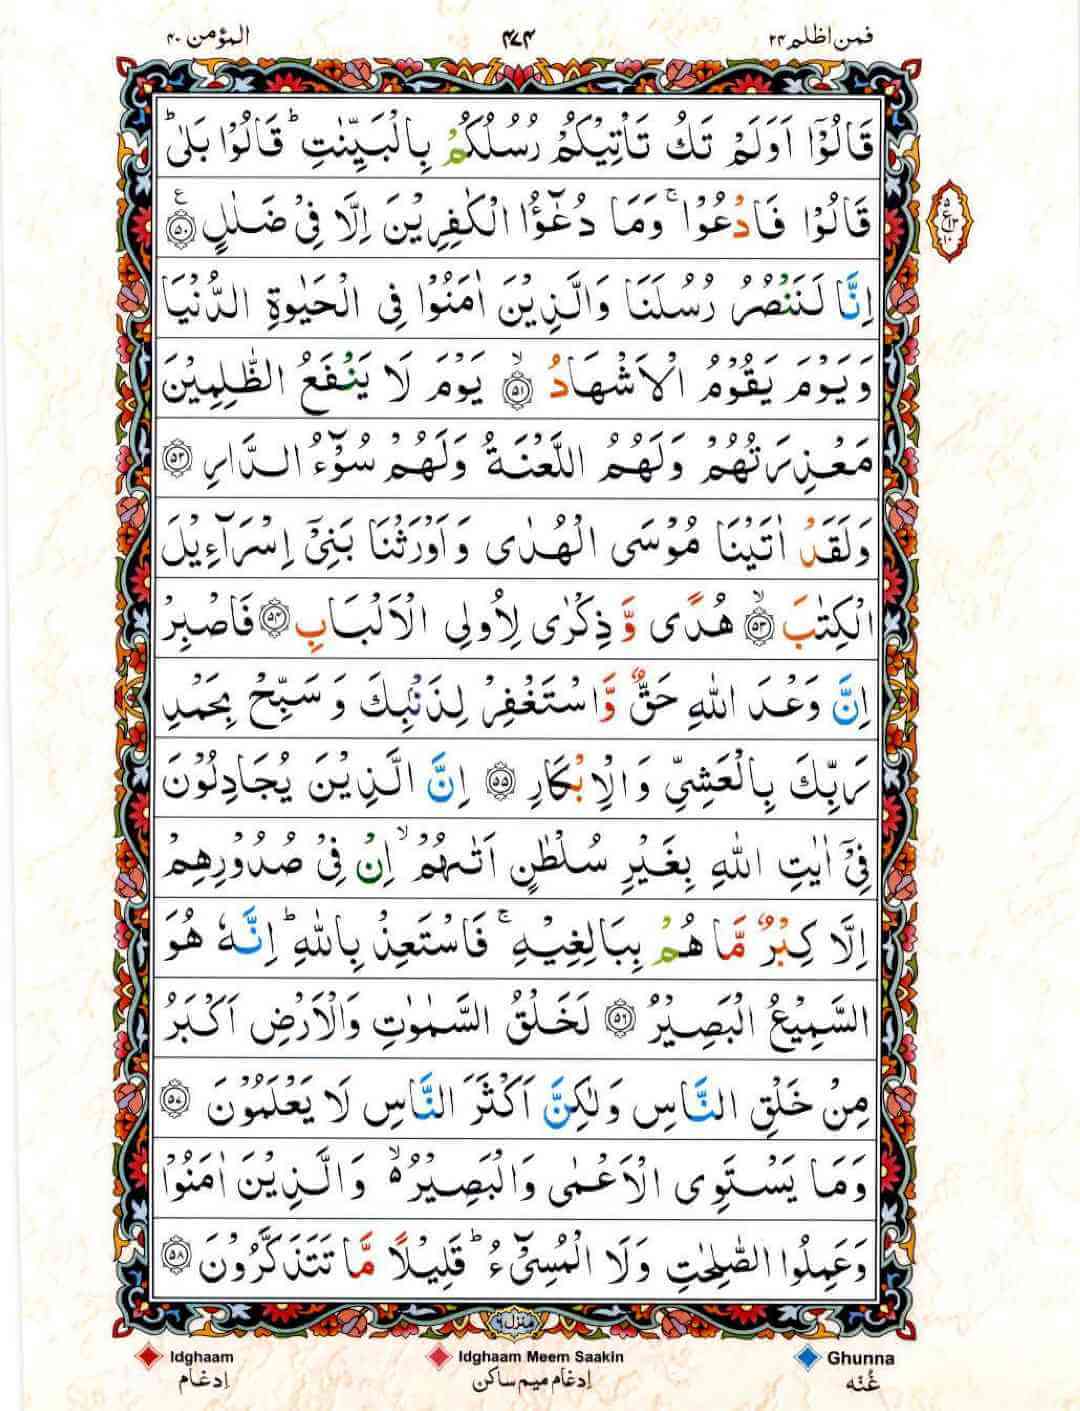 فمن اظلم ۲۴ ۴۷۴ المؤمن ۴۰
قَالُوْۤا اَوَلَمْ تَكُ تَاْتِیْكُمْ رُسُلُكُمْ بِالْبَیِّنٰتِ ؕ قَالُوْا بَلٰی ؕ
قَالُوْا فَادْعُوْا ۚ وَمَا دُعٰٓؤُا الْكٰفِرِیْنَ اِلَّا فِیْ ضَلٰلٍ ﴿۵۰﴾ ع
۵ ع ۱۳ ۱۰
اِنَّا لَنَنْصُرُ رُسُلَنَا وَالَّذِیْنَ اٰمَنُوْا فِی الْحَیٰوةِ الدُّنْیَا
وَیَوْمَ یَقُوْمُ الْاَشْهَادُ ﴿ۙ۵۱﴾ یَوْمَ لَا یَنْفَعُ الظّٰلِمِیْنَ
مَعْذِرَتُهُمْ وَلَهُمُ اللَّعْنَةُ وَلَهُمْ سُوْٓءُ الدَّارِ ﴿۵۲﴾
وَلَقَدْ اٰتَیْنَا مُوْسَی الْهُدٰی وَاَوْرَثْنَا بَنِیْۤ اِسْرَآءِیْلَ
الْكِتٰبَ ﴿ۙ۵۳﴾ هُدًی وَّ ذِكْرٰی لِاُولِی الْاَلْبَابِ ﴿۵۴﴾ فَاصْبِرْ
اِنَّ وَعْدَ اللّٰهِ حَقٌّ وَّاسْتَغْفِرْ لِذَنْۢبِكَ وَ سَبِّحْ بِحَمْدِ
رَبِّكَ بِالْعَشِیِّ وَالْاِبْكَارِ ﴿۵۵﴾ اِنَّ الَّذِیْنَ یُجَادِلُوْنَ
فِیْۤ اٰیٰتِ اللّٰهِ بِغَیْرِ سُلْطٰنٍ اَتٰىهُمْ ۙ اِنْ فِیْ صُدُوْرِهِمْ
اِلَّا كِبْرٌ مَّا هُمْ بِبَالِغِیْهِ ۚ فَاسْتَعِذْ بِاللّٰهِ ؕ اِنَّهٗ هُوَ
السَّمِیْعُ الْبَصِیْرُ ﴿۵۶﴾ لَخَلْقُ السَّمٰوٰتِ وَالْاَرْضِ اَكْبَرُ
مِنْ خَلْقِ النَّاسِ وَلٰكِنَّ اَكْثَرَ النَّاسِ لَا یَعْلَمُوْنَ ﴿۵۷﴾
وَمَا یَسْتَوِی الْاَعْمٰی وَالْبَصِیْرُ ۙ۬ وَالَّذِیْنَ اٰمَنُوْا
وَعَمِلُوا الصّٰلِحٰتِ وَلَا الْمُسِیْٓءُ ؕ قَلِیْلًا مَّا تَتَذَكَّرُوْنَ ﴿۵۸﴾
منزل ۶
Idghaam Idghaam Meem Saakin Ghunna
اِدغام اِدغام میم ساکن غُنّه